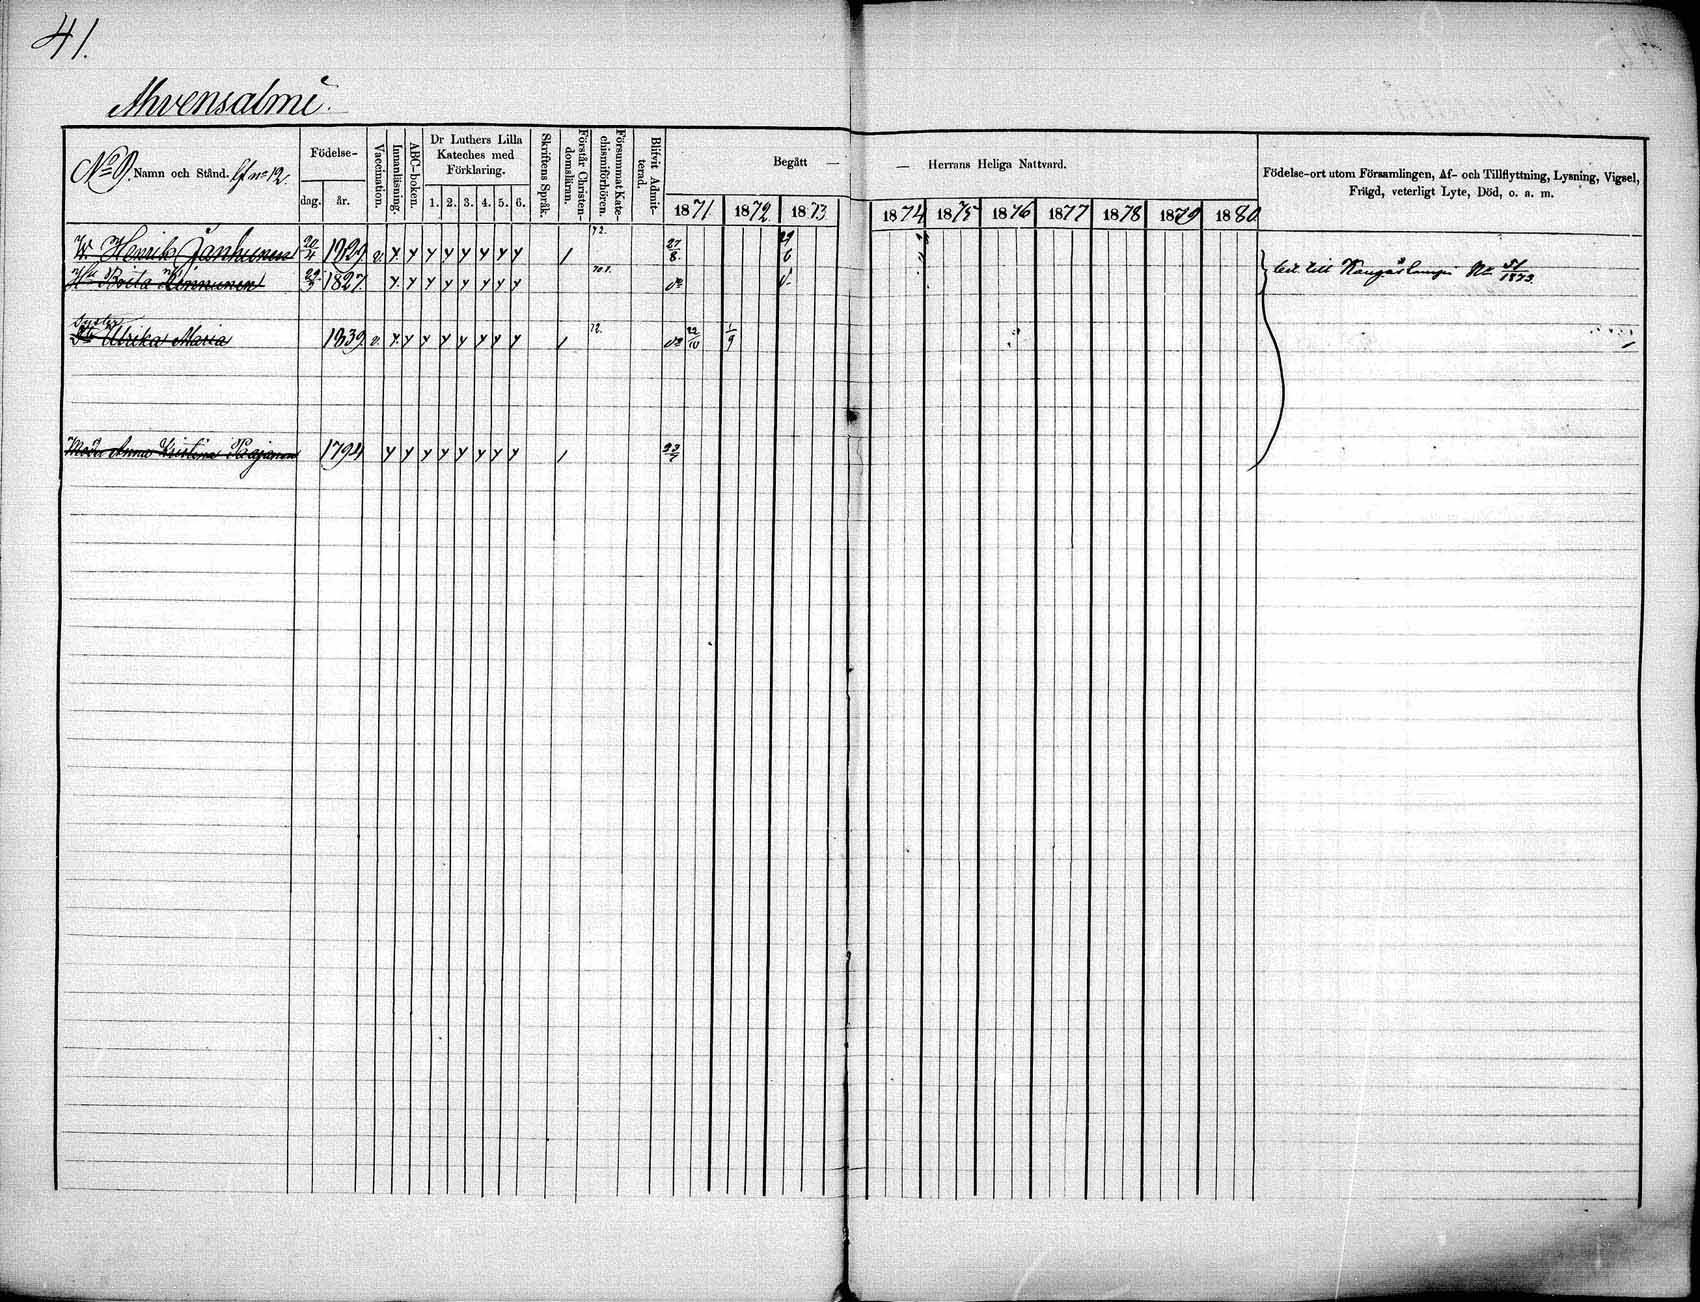 41.
Ahvensalmi.
No 9. Namn och Stånd. lf no 12.
Födelse-
dag. år.
Vaccination.
Innanläsning.
ABC-boken.
Dr Luthers Lilla
Kateches med
Förklaring.
1. 2. 3. 4. 5. 6.
Skriftens Språk.
Förstår Christen-
domsläran.
Försummat Kate-
chismiförhören.
Blifvit Admit-
terad.
Begått —
— Herrans Heliga Nattvard.
1871. 1872. 1873. 1874 1875 1876 1877 1878 1879 1880
Födelse-ort utom Församlingen, Af- och Tillflyttning, Lysning, Vigsel,
Frägd, veterligt Lyte, Död, o. a. m.
Henrik Janhunen 20/4 1829 v. 72. 27/8 29/6
Brita 1827 70 1.
bet. till Kangaslampi No 51/1873.
Syster
Ulrika Maria 1839. v. 72. 22/10 1/9
Moder Anna Kristina 1794